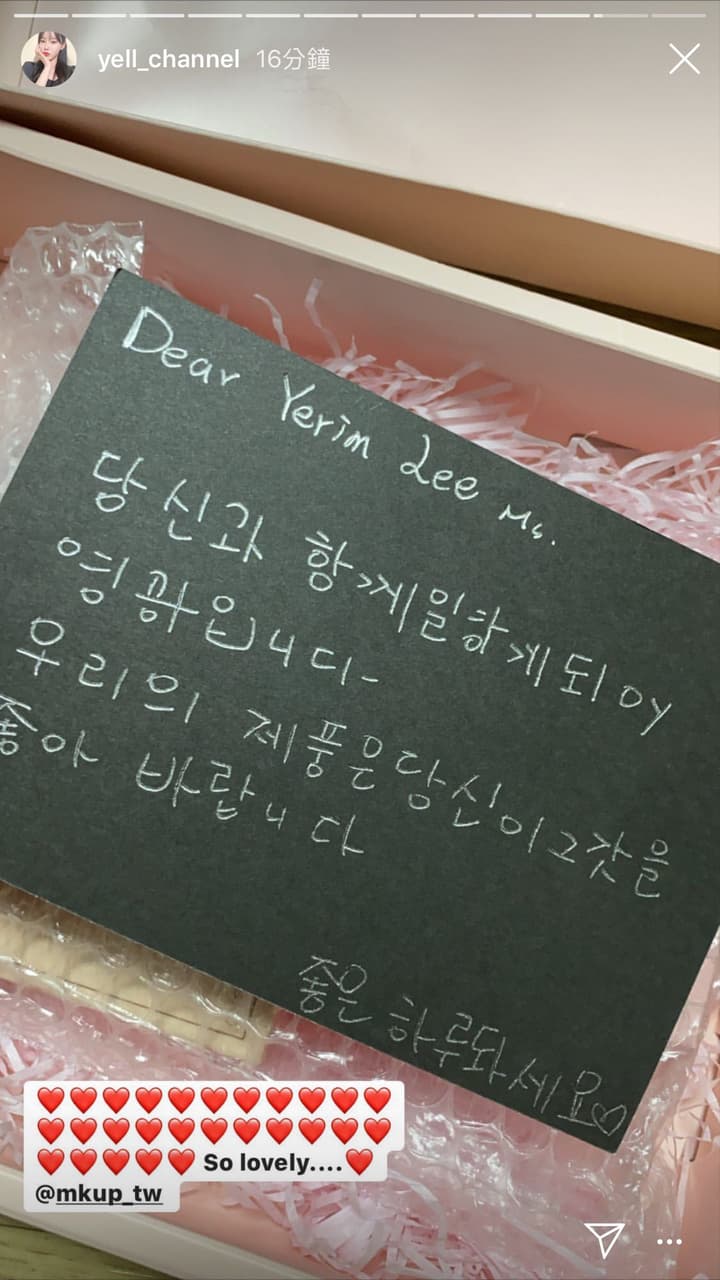 yell_channel 16分鐘
Dear Yerim Lee Ms.
당신과 항께일하게되어
영광입니다-
우리의 제풍은당신이그갓을
좋아 바랍니다
좋은 하루돠세요♡
❤️❤️❤️❤️❤️❤️❤️❤️❤️❤️❤️
❤️❤️❤️❤️❤️❤️❤️❤️❤️❤️❤️
❤️❤️❤️❤️❤️ So lovely....❤️
@mkup_tw